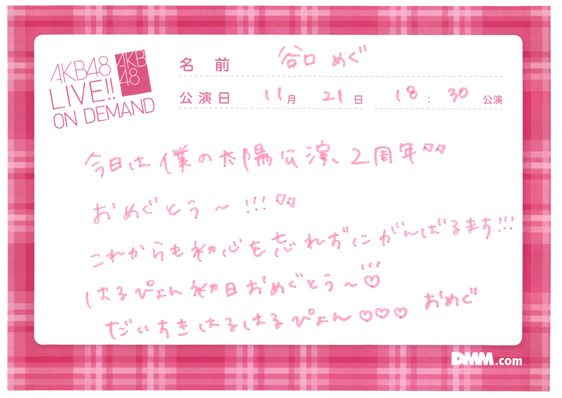 AKB48
LIVE!!
ON DEMAND
AKB
48
名前 谷口 めぐ
公演日 11月 21日 18:30 公演
今日は僕の太陽公演、2周年
おめぐとう〜!!!
これからも初心を忘れずにがんばるます!!!
はるぴょん初日おめぐとう〜♡!!!
だいすきはるはるぴょん♡♡♡ おめぐ
DMM.com